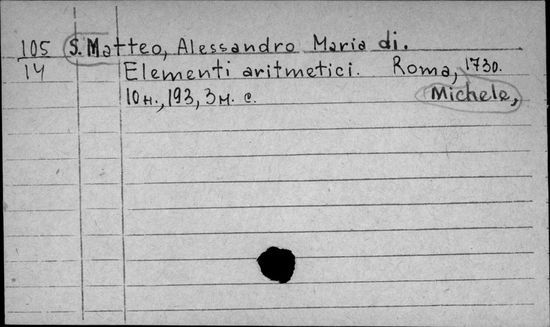 105 S. Matteo, Alessandro Maria di.
14 Elementi aritmetici. Roma, 1730.
10н., 193, 3н. с. Michele,